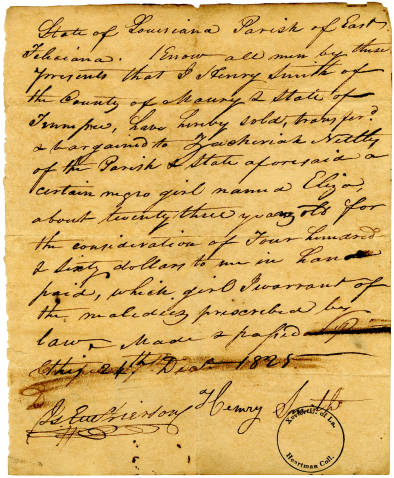 State of Louisiana Parish of East
Feliciana. Know all men by these
presents that I Henry Smith of
the County of Maury & State of
Tennessee, have hereby sold, transfer'd
& bargained to Zacheriah Nettles
of the Parish & State aforesaid a
certain negro girl named Eliza,
about twenty three years old for
the consideration of Four hundred
& sixty dollars to me in hand
paid, which girl I warrant of
the maladies prescribed by
law. Made & passed
this 24th Dect 1825
Henry Smith
Xavier U. of La.
Heartman Coll.